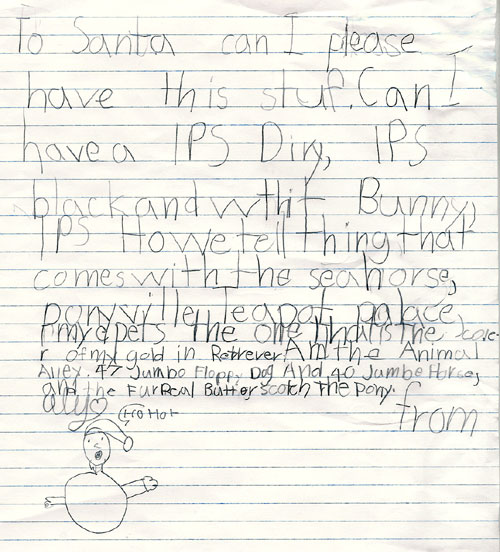 To Santa can I please
have this stuf. Can I
have a IPS Diry, IPS
black and whit Bunny,
IPS Howetell thing that
comes with the seahorse,
ponyville teapot palace,
the one that is the coler
r of my gold in Retrever, An the Animal
Alley. 47 Jumbo Floppy Dog And 40 Jumbe Horse,
and the FurReal Butterscotch the Pony.
from
ally
Ho Ho!